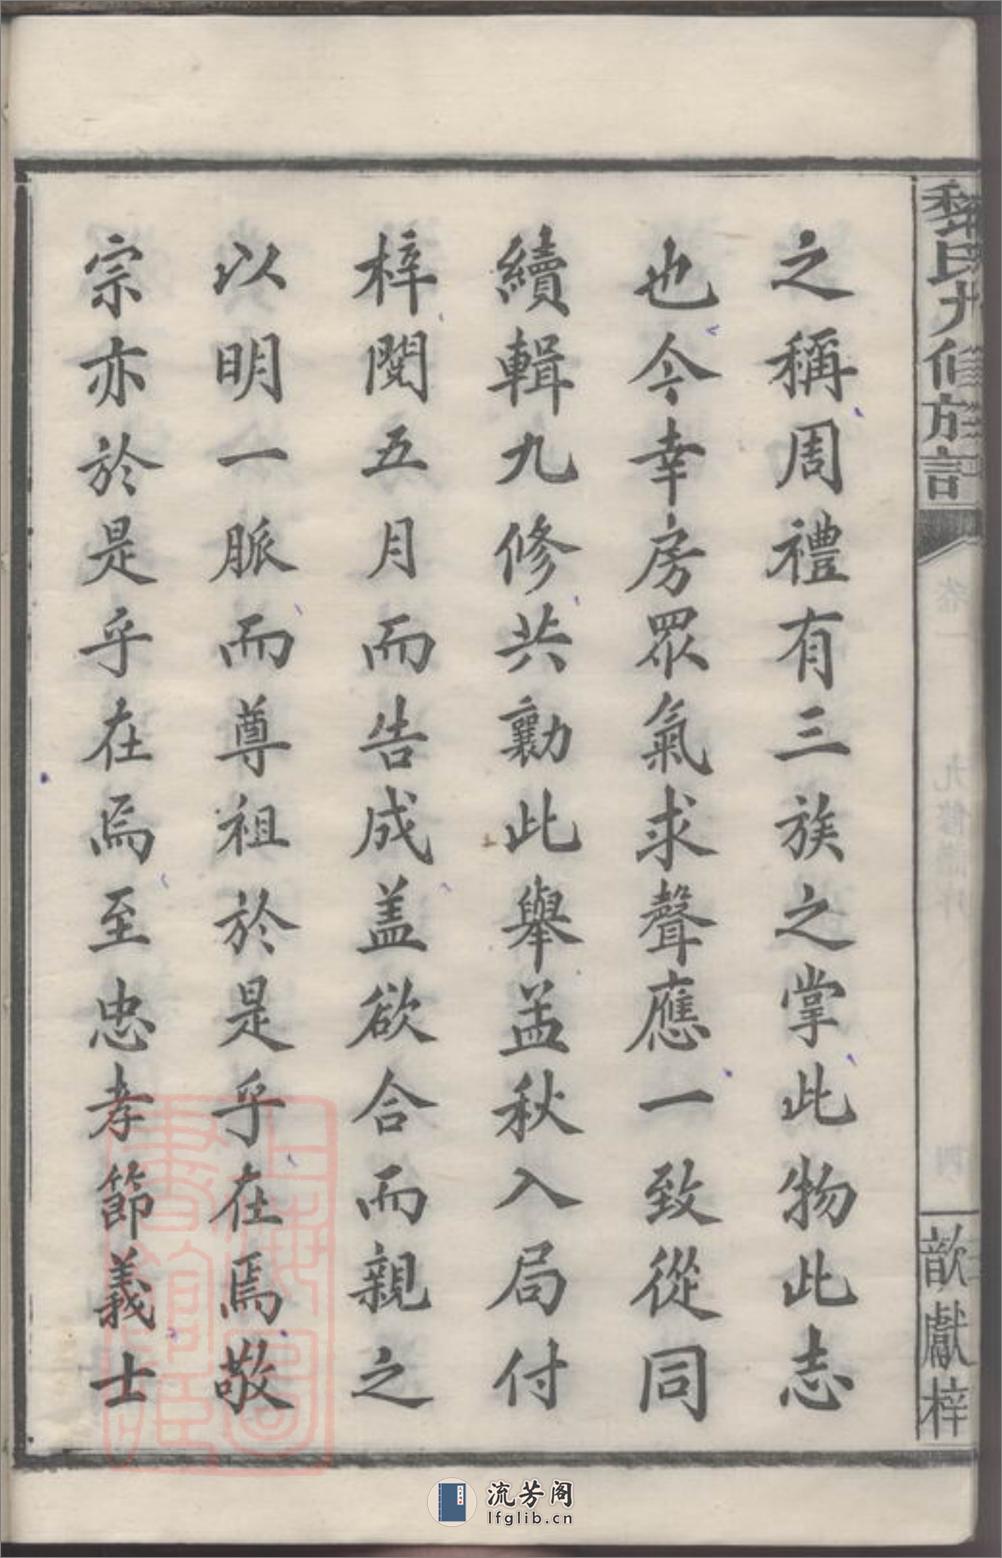 黎氏九修族記
歆獻梓
之稱周禮有三族之掌此物此志
也今幸房眾氣求聲應一致從同
續輯九修共勷此舉盖秋入局付
梓閱五月而告成盖欲合而親之
以明一脈而尊祖於是乎在焉敬
宗亦於是乎在焉至忠孝節義士
流芳阁
lfglib.cn